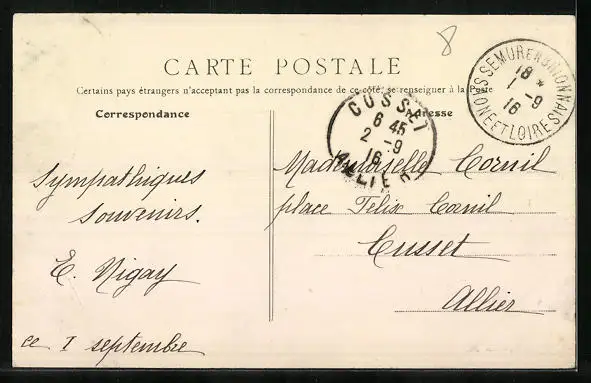 8
CARTE POSTALE
Certains pays étrangers n'acceptant pas la correspondance de ce côté, se renseigner à la Poste
Correspondance
Adresse
SEMUR EN BRIONNAIS
18 *
1 - 9
16
SAONE ET LOIRE
CUSSET
6 45
2 - 9
16
ALLIER
Sympathiques
souvenirs.
E. Nigay
ce I septembre
Mademoiselle Cornil
place Félix Cornil
Cusset
Allier